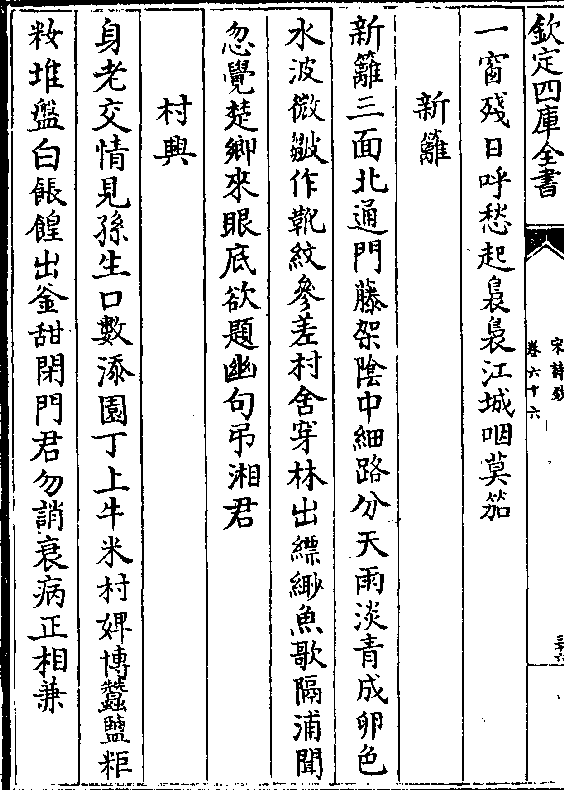 欽定四庫全書
宋詩鈔
卷六十六
一窗殘日呼愁起裊裊江城咽莫笳
新籬
新籬三面北通門藤架陰中細路分天雨淡青成卵色
水波微皺作靴紋參差村舍穿林出縹緲魚歌隔浦聞
忽覺楚鄉來眼底欲題幽句弔湘君
村興
身老交情見孫生口數添園丁上牛米村婢博蠶鹽粔
籹堆盤白餦餭出釜甜閉門君勿誚衰病正相兼